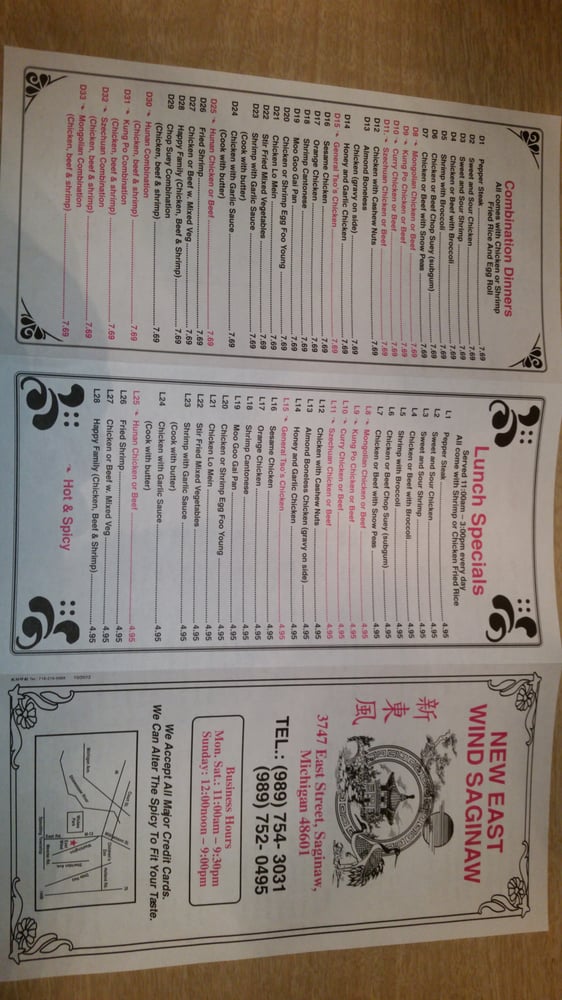 Combination Dinners
All comes with Chicken or Shrimp
Fried Rice And Egg Roll
D1 Pepper Steak 7.69
D2 Sweet and Sour Chicken 7.69
D3 Sweet and Sour Shrimp 7.69
D4 Chicken or Beef with Broccoli 7.69
D5 Shrimp with Broccoli 7.69
D6 Chicken or Beef Chop Suey (subgum) 7.69
D7 Chicken or Beef with Snow Peas 7.69
D8 Mongolian Chicken or Beef 7.69
D9 Kung Po Chicken or Beef 7.69
D10 Curry Chicken or Beef 7.69
D11 Szechuan Chicken or Beef 7.69
D12 Chicken with Cashew Nuts 7.69
D13 Almond Boneless
Chicken (gravy on side) 7.69
D14 Honey and Garlic Chicken 7.69
D15 General Tao's Chicken 7.69
D16 Sesame Chicken 7.69
D17 Orange Chicken 7.69
D18 Shrimp Cantonese 7.69
D19 Moo Goo Gai Pan 7.69
D20 Chicken or Shrimp Egg Foo Young 7.69
D21 Chicken Lo Mein 7.69
D22 Stir Fried Mixed Vegetables 7.69
D23 Shrimp with Garlic Sauce 7.69
(Cook with butter)
D24 Chicken with Garlic Sauce 7.69
(Cook with butter)
D25 Hunan Chicken or Beef 7.69
D26 Fried Shrimp 7.69
D27 Chicken or Beef w. Mixed Veg 7.69
D28 Happy Family (Chicken, Beef & Shrimp) 7.69
D29 Chop Suey Combination
(Chicken, beef & shrimp) 7.69
D30 Hunan Combination
(Chicken, beef & shrimp) 7.69
D31 Kung Po Combination
(Chicken, beef & shrimp) 7.69
D32 Szechuan Combination
(Chicken, beef & shrimp) 7.69
D33 Mongolian Combination
(Chicken, beef & shrimp) 7.69
Lunch Specials
Served 11:00am – 3:00pm every day
All come with Shrimp or Chicken Fried Rice
L1 Pepper Steak 4.95
L2 Sweet and Sour Chicken 4.95
L3 Sweet and Sour Shrimp 4.95
L4 Chicken or Beef with Broccoli 4.95
L5 Shrimp with Broccoli 4.95
L6 Chicken or Beef Chop Suey (subgum) 4.95
L7 Chicken or Beef with Snow Peas 4.95
L8 Mongolian Chicken or Beef 4.95
L9 Kung Po Chicken or Beef 4.95
L10 Curry Chicken or Beef 4.95
L11 Szechuan Chicken or Beef 4.95
L12 Chicken with Cashew Nuts 4.95
L13 Almond Boneless Chicken (gravy on side) 4.95
L14 Honey and Garlic Chicken 4.95
L15 General Tao's Chicken 4.95
L16 Sesame Chicken 4.95
L17 Orange Chicken 4.95
L18 Shrimp Cantonese 4.95
L19 Moo Goo Gai Pan 4.95
L20 Chicken or Shrimp Egg Foo Young 4.95
L21 Chicken Lo Mein 4.95
L22 Stir Fried Mixed Vegetables 4.95
L23 Shrimp with Garlic Sauce 4.95
(Cook with butter)
L24 Chicken with Garlic Sauce 4.95
(Cook with butter)
L25 Hunan Chicken or Beef 4.95
L26 Fried Shrimp 4.95
L27 Chicken or Beef w. Mixed Veg 4.95
L28 Happy Family (Chicken, Beef & Shrimp) 4.95
Hot & Spicy
NEW EAST
WIND SAGINAW
新東風
3747 East Street, Saginaw,
Michigan 48601
TEL.: (989) 754- 3031
(989) 752- 0495
Business Hours
Mon. Sat.: 11:00am – 9:30pm
Sunday: 12:00noon – 9:00pm
We Accept All Major Credit Cards.
We Can Alter The Spicy To Fit Your Taste.